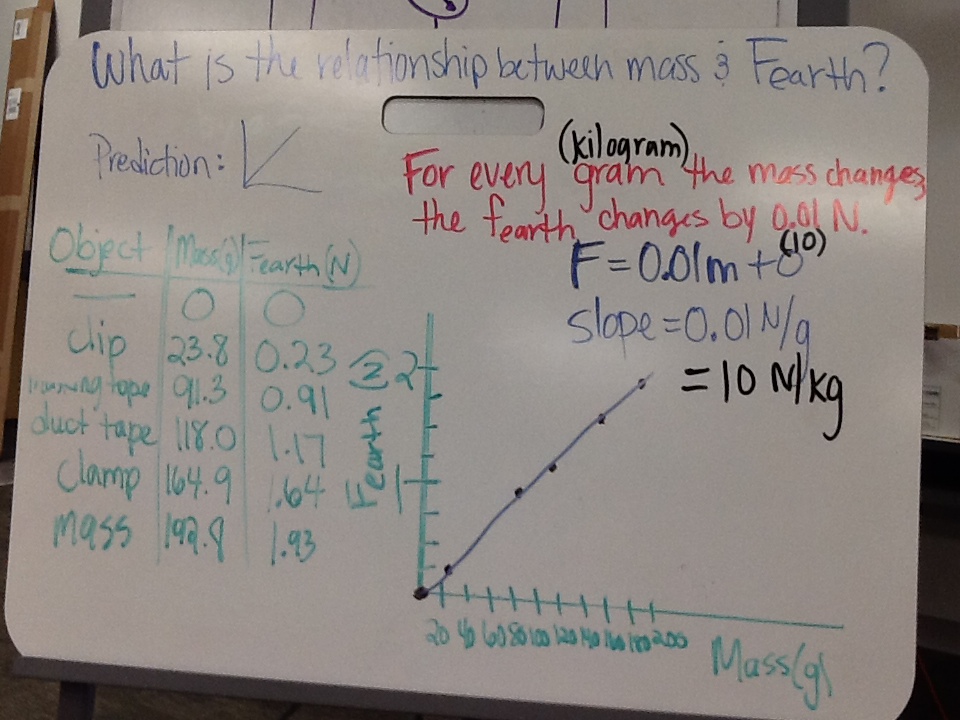 What is the relationship between mass & Fearth?
Prediction:
(kilogram)
For every gram the mass changes
the fearth changes by 0.01 N.
(10)
F = 0.01m + 0
slope = 0.01 N/g
= 10 N/kg
Object Mass(g) Fearth (N)
— 0 0
clip 23.8 0.23
tape 91.3 0.91
duct tape 118.0 1.17
Clamp 164.9 1.64
mass 192.8 1.93
Fearth (N)
2
1
20 40 60 80 100 120 140 160 180 200
Mass(g)